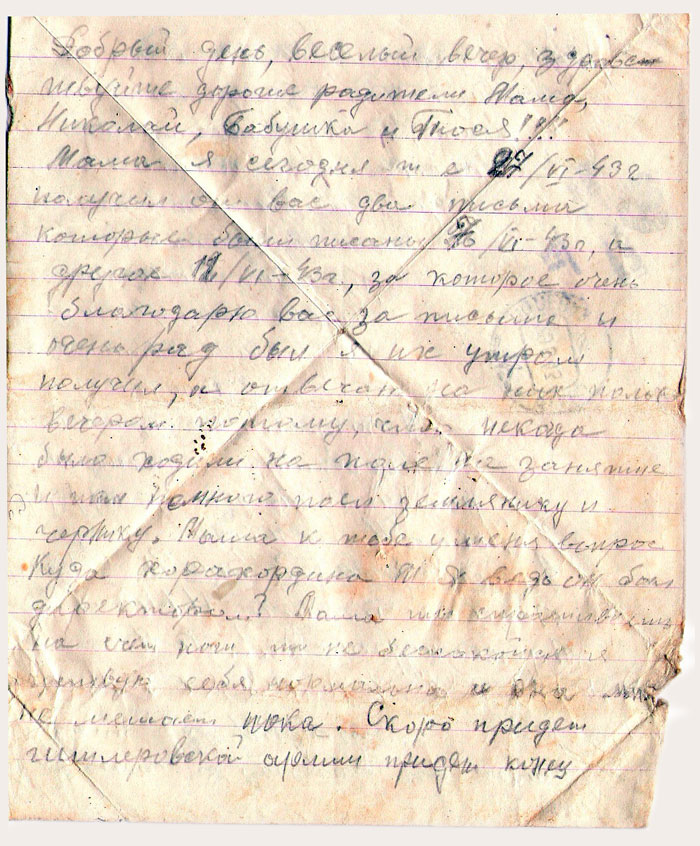 Добрый день, веселый вечер, здравст
вуйте дорогие родители Мама,
Николай, Бабушка и Тося!!!
Мама я сегодня т е 27/VI-43г
получил от вас два письма
которые были писаны /VI-43г, а
другое 11/VI-43г, за которое очень
благодарю вас за письмо и
очень рад был я их утром
получил, а отвечаю на них тольк
вечером потому, что некогда
было ходили на поле на занятие
и там немного поел землянику и
чернику. Мама к тебе у меня вопрос
Куда ведь он был
директором? Мама ты спрашиваешь
на счет ноги ты не беспокойся я
чувствую себя нормально и она мне
не мешает пока. Скоро придет
гитлеровской армии придет конец